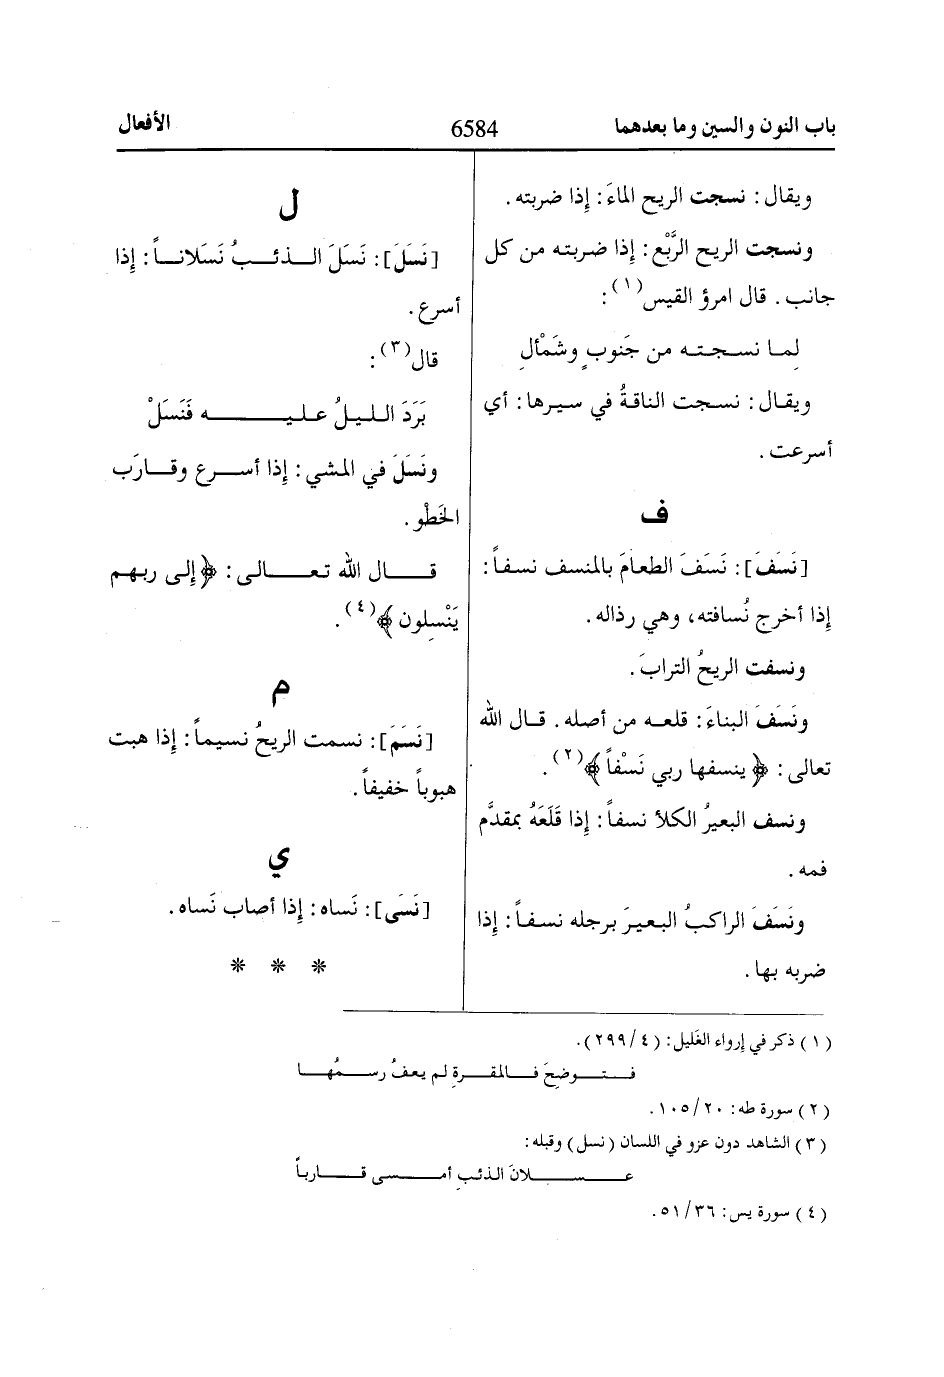 باب النون والسين وما بعدهما
6584
الأفعال
ويقال: نسجت الريح الماءَ: إذا ضربته.
ونسجت الريح الرَّبْع: إذا ضربته من كل
جانب. قال امرؤ القيس(١):
لِما نسجته من جَنوبٍ وشَمْألِ
ويقال: نسجت الناقةُ في سيرها: أي
أسرعت.
ف
[نَسَفَ]: نَسَفَ الطعامَ بالمنسف نسفاً:
إذا أخرج نُسافته، وهي رذاله.
ونسفت الريحُ الترابَ.
ونَسَفَ البناءَ: قلعه من أصله. قال الله
تعالى: ﴿ينسفها ربي نَسْفاً﴾(٢).
ونسف البعيرُ الكلأ نسفاً: إذا قَلَعَهُ بمقدَّم
فمه.
ونَسَفَ الراكبُ البعيرَ برجله نسفاً: إذا
ضربه بها.
ل
[نَسَلَ]: نَسَلَ الذئبُ نَسَلاناً: إذا
أسرع.
قال(٣):
بَرَدَ الليلُ عليه فَنَسَلْ
ونَسَلَ في المشي: إذا أسرع وقارَب
الخَطْو.
قال الله تعالى: ﴿إلى ربهم
يَنْسلون﴾(٤).
م
[نَسَمَ]: نسمت الريحُ نسيماً: إذا هبت
هبوباً خفيفاً.
ي
[نَسَى]: نَساه: إذا أصاب نَساه.
* * *
(١) ذكر في إرواء الغَليل: (٤/٢٩٩).
فتوضحَ فالمقرةِ لم يعفُ رسمُها
(٢) سورة طه: ٢٠/١٠٥.
(٣) الشاهد دون عزو في اللسان (نسل) وقبله:
عسلانَ الذئبِ أمسى قارباً
(٤) سورة يس: ٣٦/٥١.